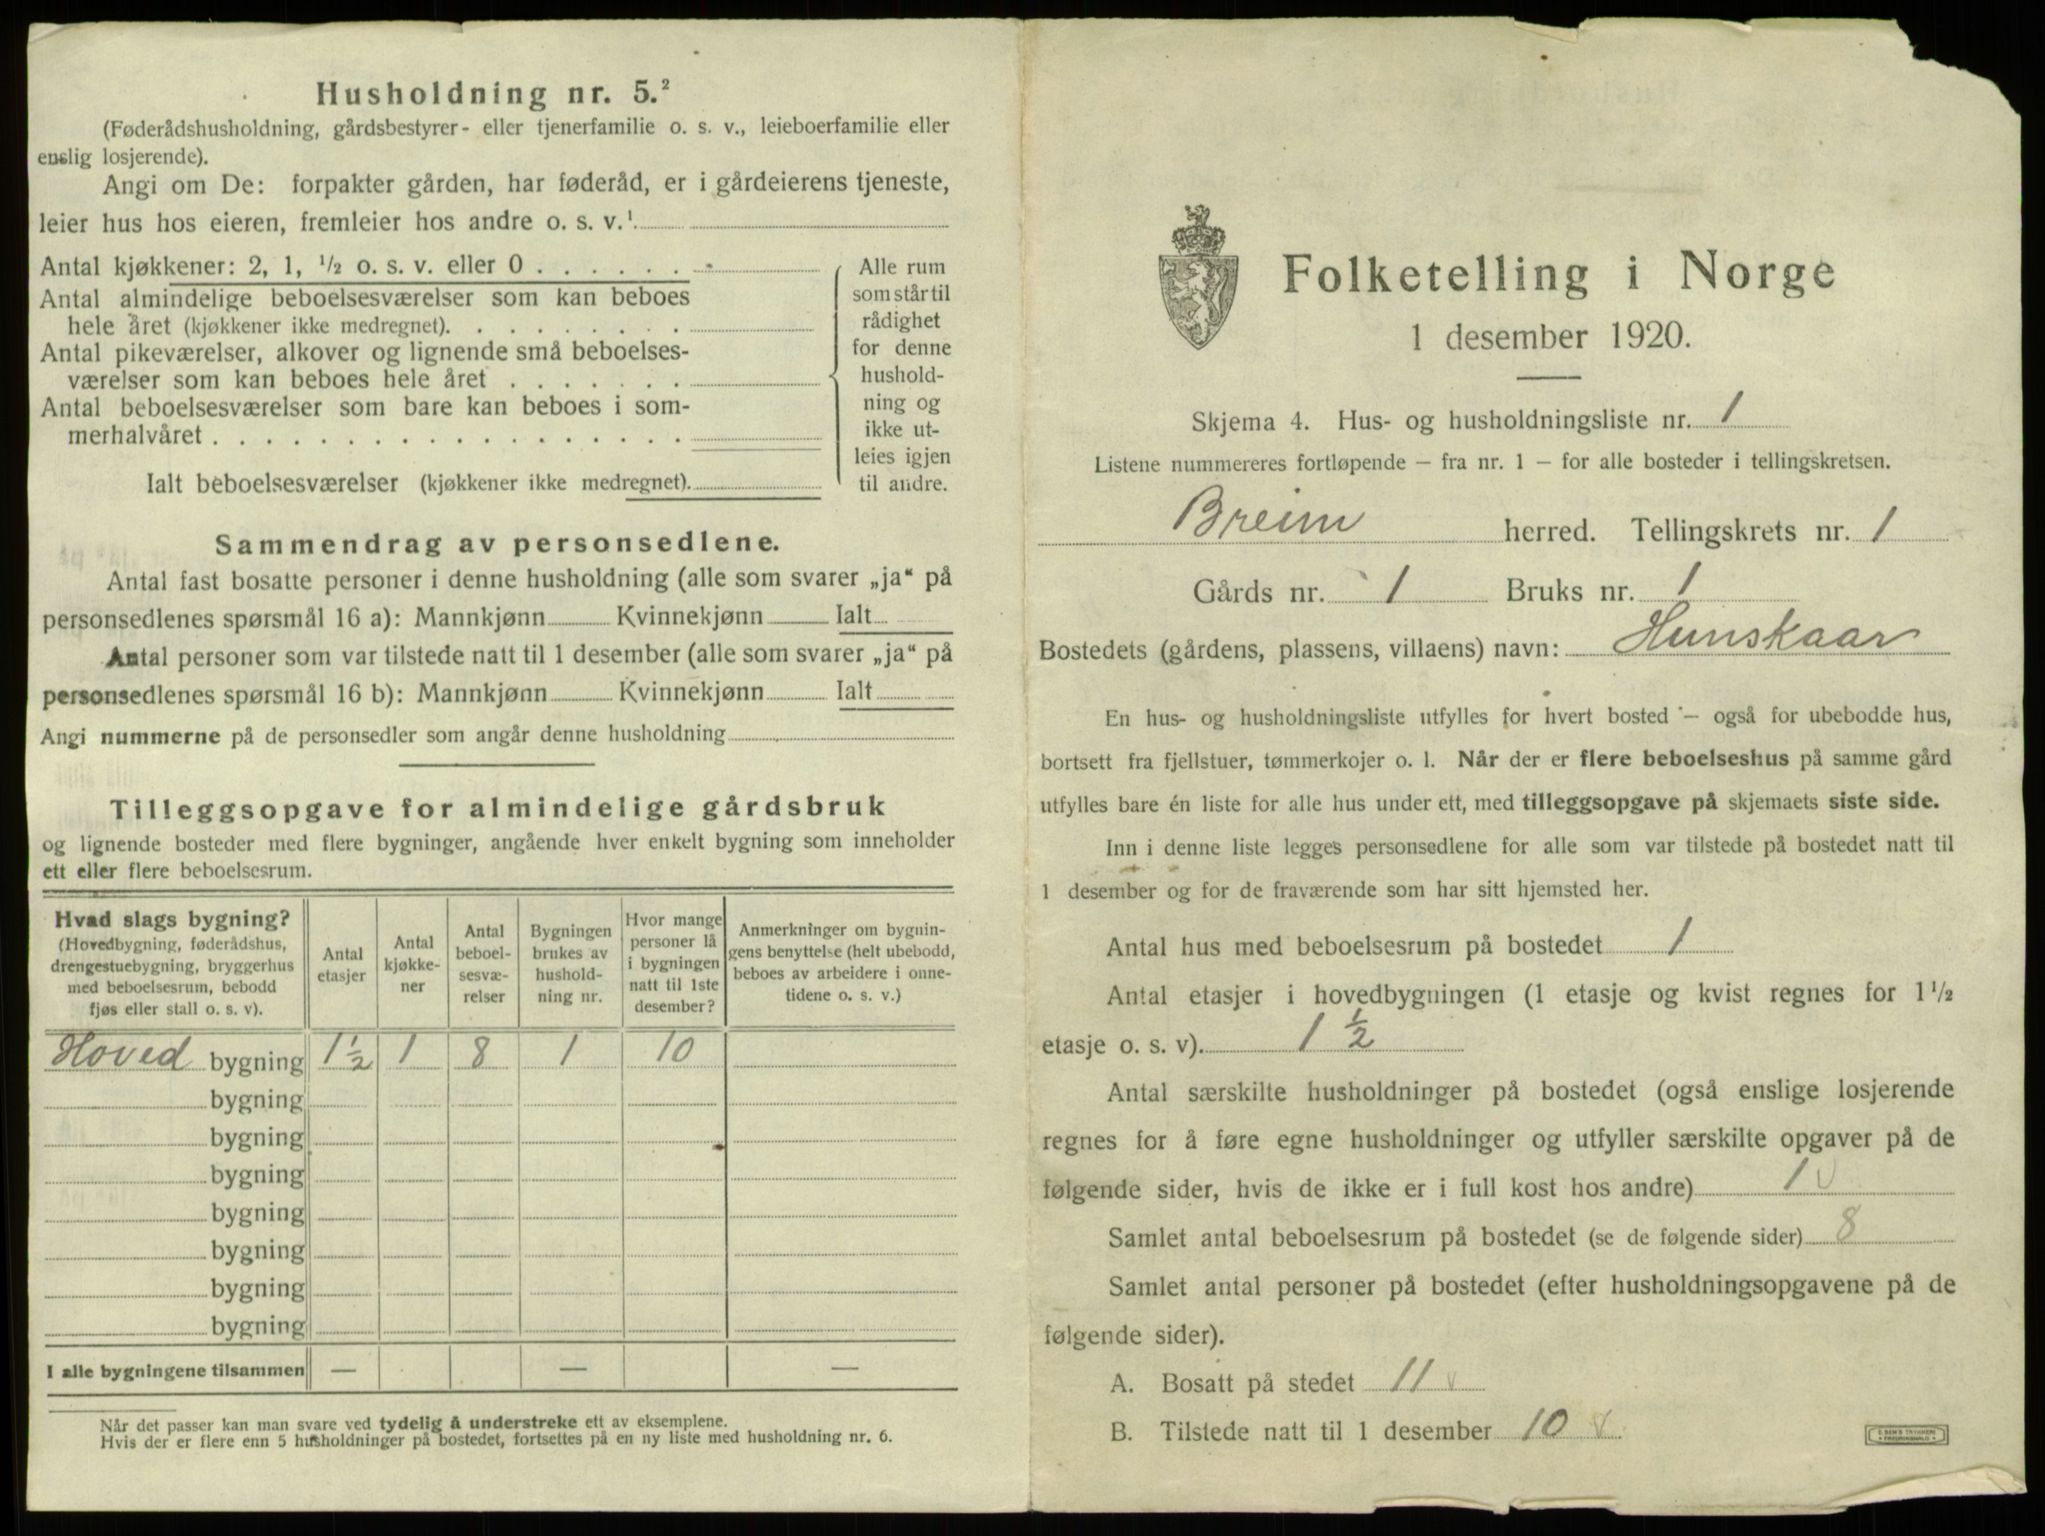 Husholdning nr. 5.²
(Føderådshusholdning, gårdsbestyrer- eller tjenerfamilie o. s. v., leieboerfamilie eller
enslig losjerende).
Angi om De: forpakter gården, har føderåd, er i gårdeierens tjeneste,
leier hus hos eieren, fremleier hos andre o. s. v.¹
Antal kjøkkener: 2, 1, ½ o. s. v. eller 0 . . . . . .
Antal almindelige beboelsesværelser som kan beboes
hele året (kjøkkener ikke medregnet). . . . . . . . .
Antal pikeværelser, alkover og lignende små beboelses-
værelser som kan beboes hele året . . . . . . .
Antal beboelsesværelser som bare kan beboes i som-
merhalvåret . . . . . . . . . . . . . . . . . .
Ialt beboelsesværelser (kjøkkener ikke medregnet).
Alle rum
som står til
rådighet
for denne
hushold-
ning og
ikke ut-
leies igjen
til andre.
Sammendrag av personsedlene.
Antal fast bosatte personer i denne husholdning (alle som svarer „ja“ på
personsedlenes spørsmål 16 a): Mannkjønn Kvinnekjønn Ialt
Antal personer som var tilstede natt til 1 desember (alle som svarer „ja“ på
personsedlenes spørsmål 16 b): Mannkjønn Kvinnekjønn Ialt
Angi nummerne på de personsedler som angår denne husholdning
Tilleggsopgave for almindelige gårdsbruk
og lignende bosteder med flere bygninger, angående hver enkelt bygning som inneholder
ett eller flere beboelsesrum.
Hvad slags bygning?
(Hovedbygning, føderådshus,
drengestuebygning, bryggerhus
med beboelsesrum, bebodd
fjøs eller stall o. s. v).
Antal
etasjer
Antal
kjøkke-
ner
Antal
beboel-
sesvæ-
relser
Bygningen
brukes av
hushold-
ning nr.
Hvor mange
personer lå
i bygningen
natt til 1ste
desember?
Anmerkninger om bygnin-
gens benyttelse (helt ubebodd,
beboes av arbeidere i onne-
tidene o. s. v.)
Hoved bygning 1 ½ 1 8 1 10
bygning
bygning
bygning
bygning
bygning
bygning
bygning
I alle bygningene tilsammen — — —
Når det passer kan man svare ved tydelig å understreke ett av eksemplene.
Hvis der er flere enn 5 husholdninger på bostedet, fortsettes på en ny liste med husholdning nr. 6.
Folketelling i Norge
1 desember 1920.
Skjema 4. Hus- og husholdningsliste nr. 1
Listene nummereres fortløpende — fra nr. 1 — for alle bosteder i tellingskretsen.
Breim herred. Tellingskrets nr. 1
Gårds nr. 1 Bruks nr. 1
Bostedets (gårdens, plassens, villaens) navn: Hunskaar
En hus- og husholdningsliste utfylles for hvert bosted — også for ubebodde hus,
bortsett fra fjellstuer, tømmerkojer o. l. Når der er flere beboelseshus på samme gård
utfylles bare én liste for alle hus under ett, med tilleggsopgave på skjemaets siste side.
Inn i denne liste legges personsedlene for alle som var tilstede på bostedet natt til
1 desember og for de fraværende som har sitt hjemsted her.
Antal hus med beboelsesrum på bostedet 1
Antal etasjer i hovedbygningen (1 etasje og kvist regnes for 1 ½
etasje o. s. v). 1 ½
Antal særskilte husholdninger på bostedet (også enslige losjerende
regnes for å føre egne husholdninger og utfyller særskilte opgaver på de
følgende sider, hvis de ikke er i full kost hos andre) 1 v
Samlet antal beboelsesrum på bostedet (se de følgende sider) 8
Samlet antal personer på bostedet (efter husholdningsopgavene på de
følgende sider).
A. Bosatt på stedet 11 v
B. Tilstede natt til 1 desember 10 v